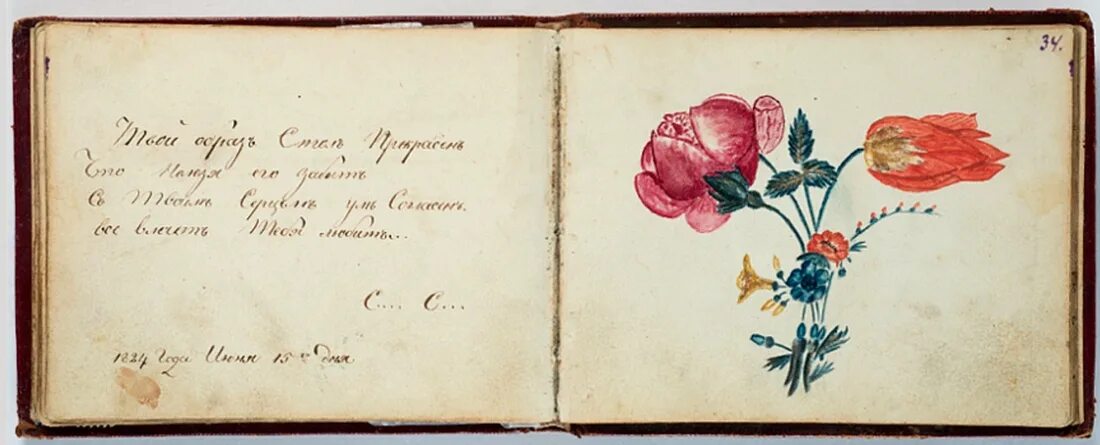 Твой образъ Столь Прекрасенъ
Что Нельзя его забыть
Съ Твоимъ Серцомъ умъ Согласенъ.
все влечетъ Тебя любить...
С... С...
1824 Года Июня 15го дня
34.